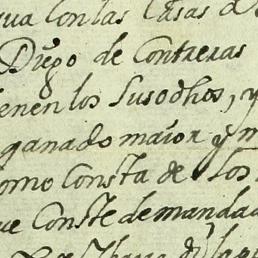 con las Casas d
Diego de Contreras
tienen los Susodhos, y
ganado maior y m
como Consta de los
que Conste de mandad